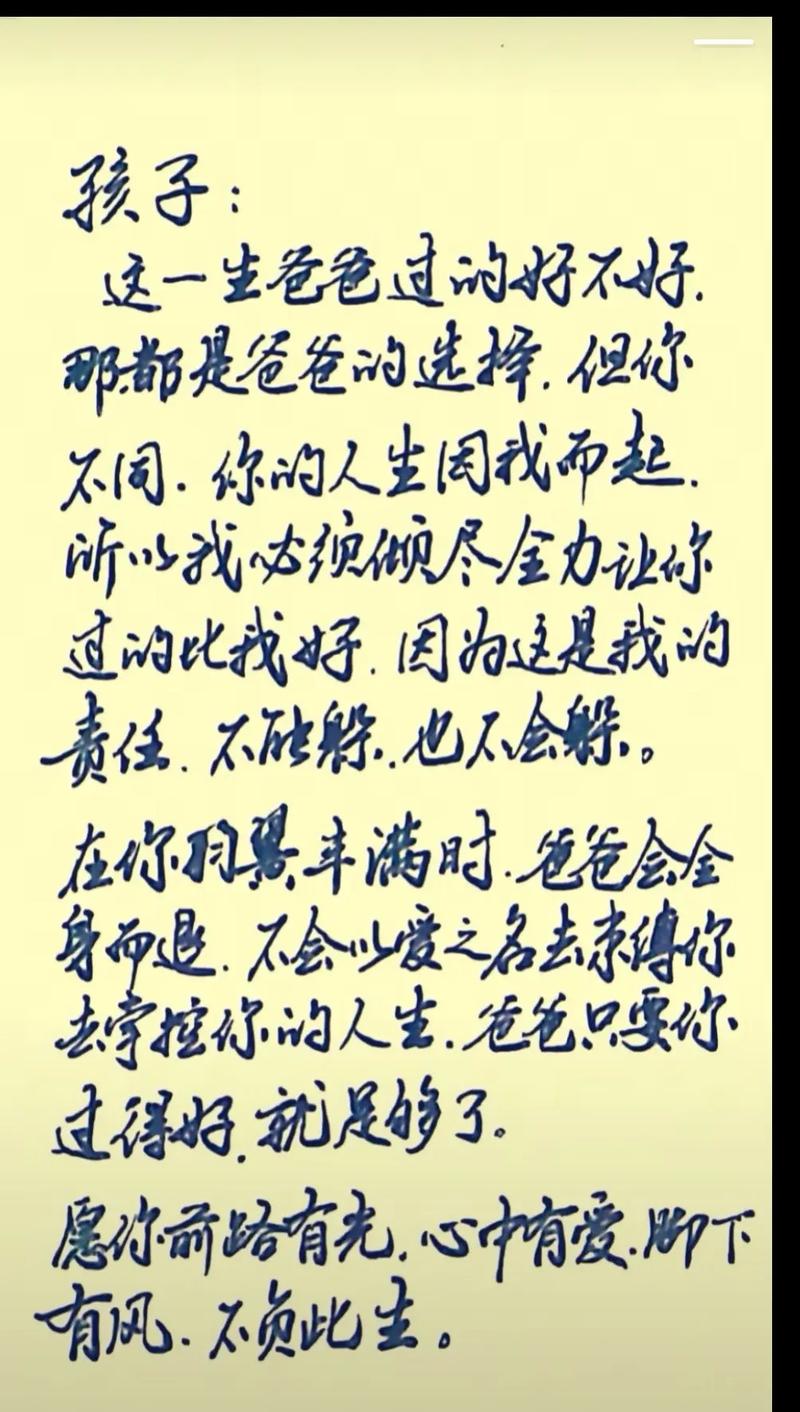 孩子：
这一生爸爸过的好不好.
那都是爸爸的选择.但你
不同.你的人生因我而起.
所以我必须倾尽全力让你
过的比我好.因为这是我的
责任.不能躲.也不会躲。
在你羽翼丰满时.爸爸会全
身而退.不会以爱之名去束缚你
去掌控你的人生.爸爸只要你
过得好.就足够了。
愿你前路有光.心中有爱.脚下
有风.不负此生。